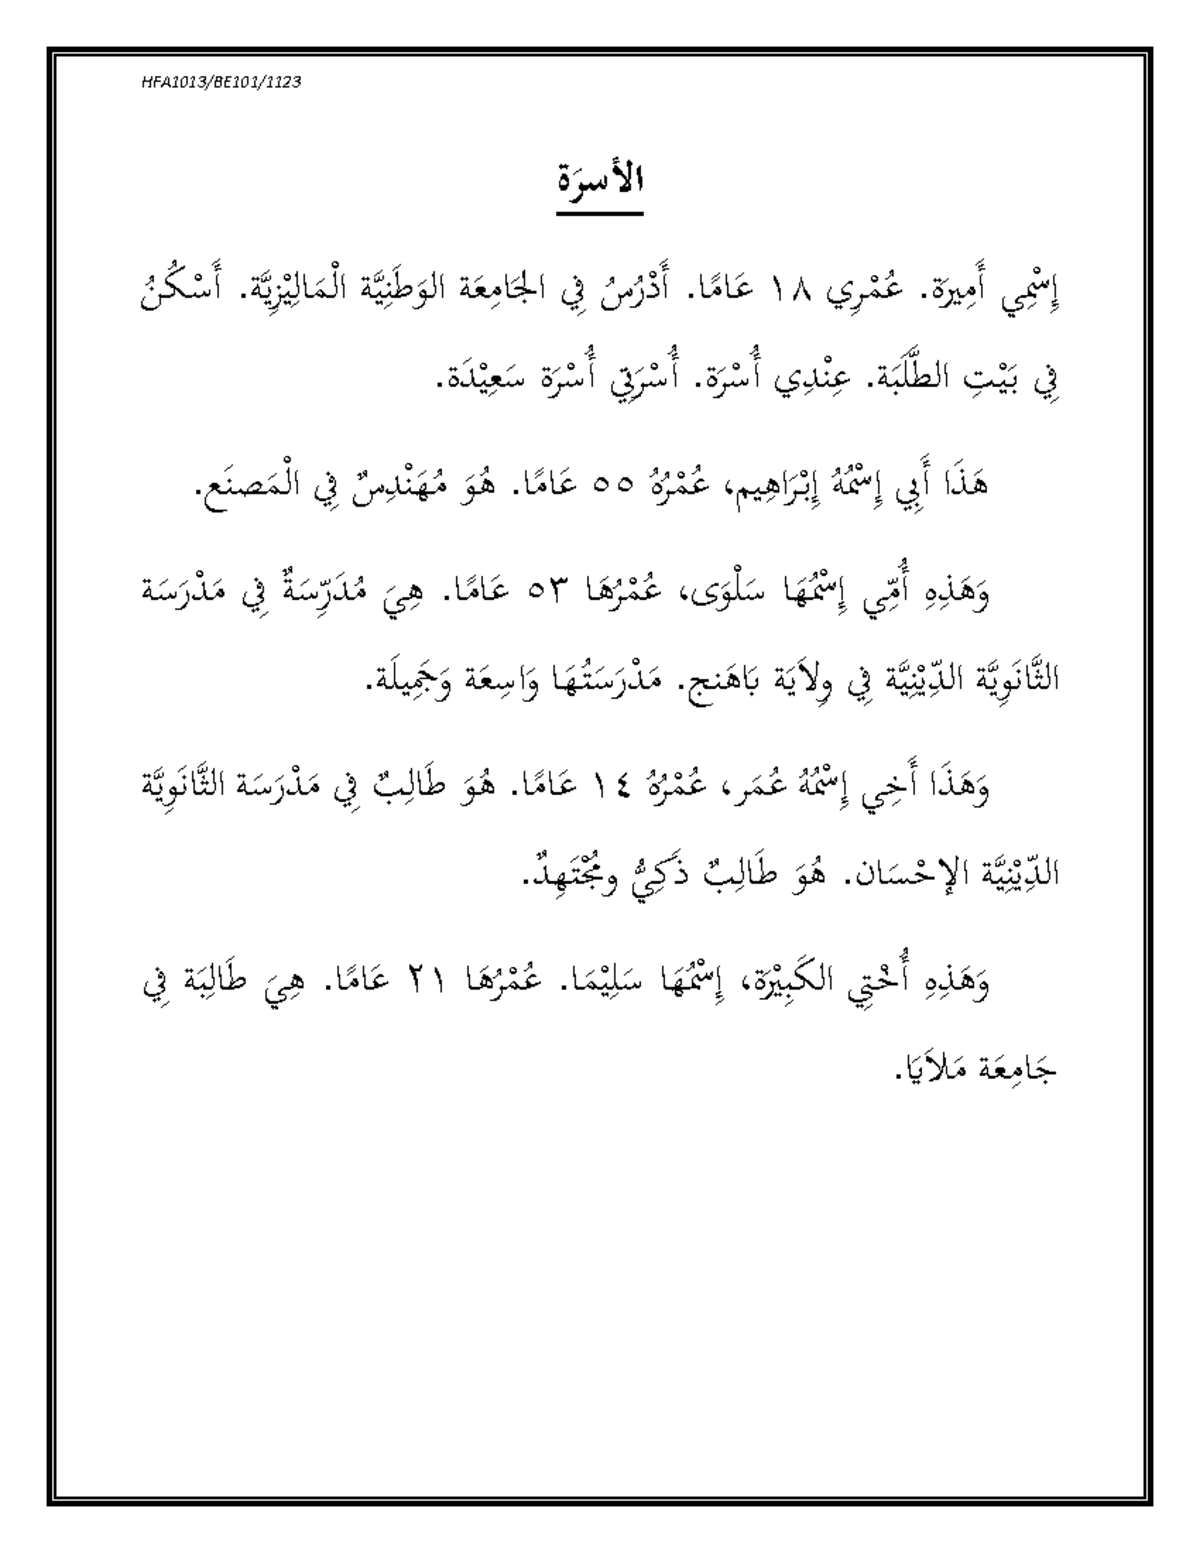 HFA1013/BE101/1123
الأسرَة
إِسْمِي أَمِيرَة. عُمْرِي ١٨ عَامًا. أَدْرُسُ فِي الجَامِعَة الوَطَنِيَّة الْمَالِيْزِيَّة. أَسْكُنُ
فِي بَيْتِ الطَّلَبَة. عِنْدِي أُسْرَة. أُسْرَتِي أُسْرَة سَعِيْدَة.
هَذَا أَبِي إِسْمُهُ إِبْرَاهِيم، عُمْرُهُ ٥٥ عَامًا. هُوَ مُهَنْدِسٌ فِي الْمَصنَع.
وَهَذِهِ أُمِّي إِسْمُهَا سَلْوَى، عُمْرُهَا ٥٣ عَامًا. هِيَ مُدَرِّسَةٌ فِي مَدْرَسَة
الثَّانَوِيَّة الدِّيْنِيَّة فِي وِلاَيَة بَاهَنج. مَدْرَسَتُهَا وَاسِعَة وَجَمِيلَة.
وَهَذَا أَخِي إِسْمُهُ عُمَر، عُمْرُهُ ١٤ عَامًا. هُوَ طَالِبٌ فِي مَدْرَسَة الثَّانَوِيَّة
الدِّيْنِيَّة الإحْسَان. هُوَ طَالِبٌ ذَكِيٌّ ومُجْتَهِدٌ.
وَهَذِهِ أُخْتِي الكَبِيْرَة، إِسْمُهَا سَلِيْمَا. عُمْرُهَا ٢١ عَامًا. هِيَ طَالِبَة فِي
جَامِعَة مَلاَيَا.